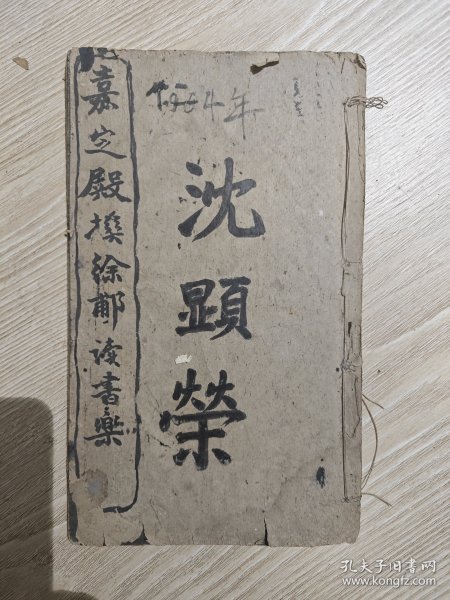 嘉定殿撰徐郙读書樂
1964年
沈顯榮
孔夫子旧书网
www.kongfz.com